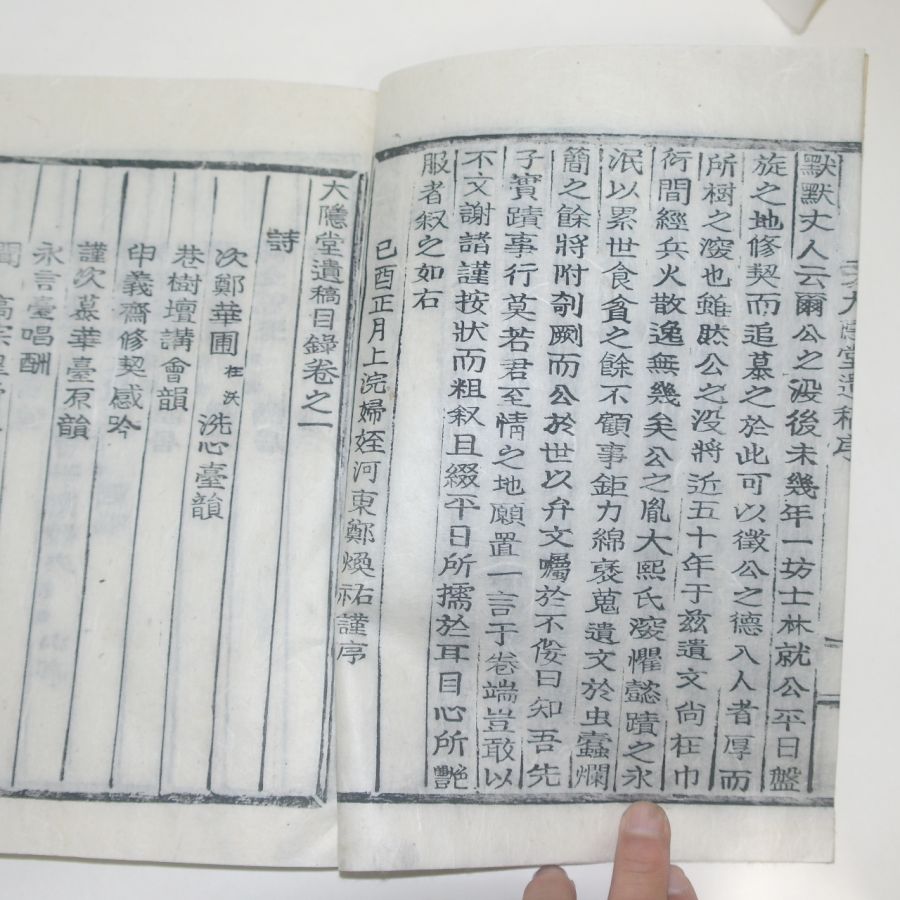 默默丈人云爾公之沒後未幾年一坊士林就公平日盤
旋之地修契而追慕之於此可以徵公之德入人者厚而
所樹之深也雖然公之沒將近五十年于玆遺文尙在巾
衍間經兵火散逸無幾矣公之胤大熙氏深懼懿蹟之永
泯以累世食貧之餘不顧事鉅力綿裒蒐遺文於虫蠹爛
簡之餘將附剞劂而公於世以弁文囑於不佞曰知吾先
子實蹟事行莫若君至情之地願置一言于卷端豈敢以
不文謝諸謹按狀而粗叙且綴平日所擩於耳目心所艷
服者叙之如右
己酉正月上浣婦姪河東鄭煥祐謹序
大隱堂遺稿目錄卷之一
詩
次鄭華圃 在 氏 洗心臺韻
巷樹壇講會韻
申義齋修契感吟
謹次慕華臺原韻
永言臺唱酬
大隱堂遺稿序